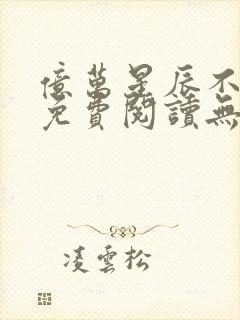 億萬星辰不
免費閱讀無
凌雲松